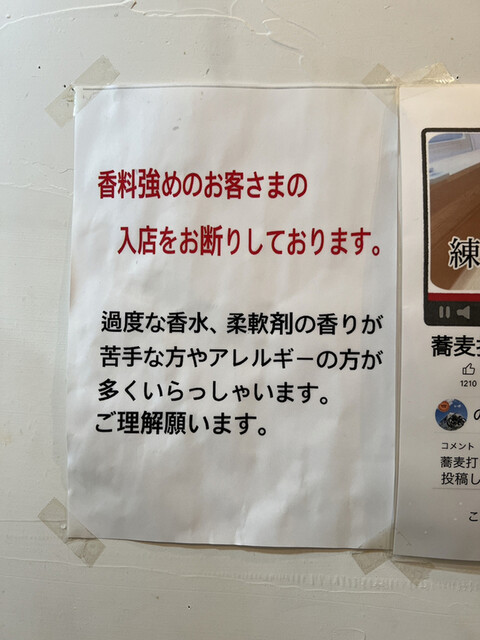 香料強めのお客さまの
入店をお断りしております。
過度な香水、柔軟剤の香りが
苦手な方やアレルギーの方が
多くいらっしゃいます。
ご理解願います。
練
蕎麦打
1210
の
コメント
蕎麦打
投稿し
こ